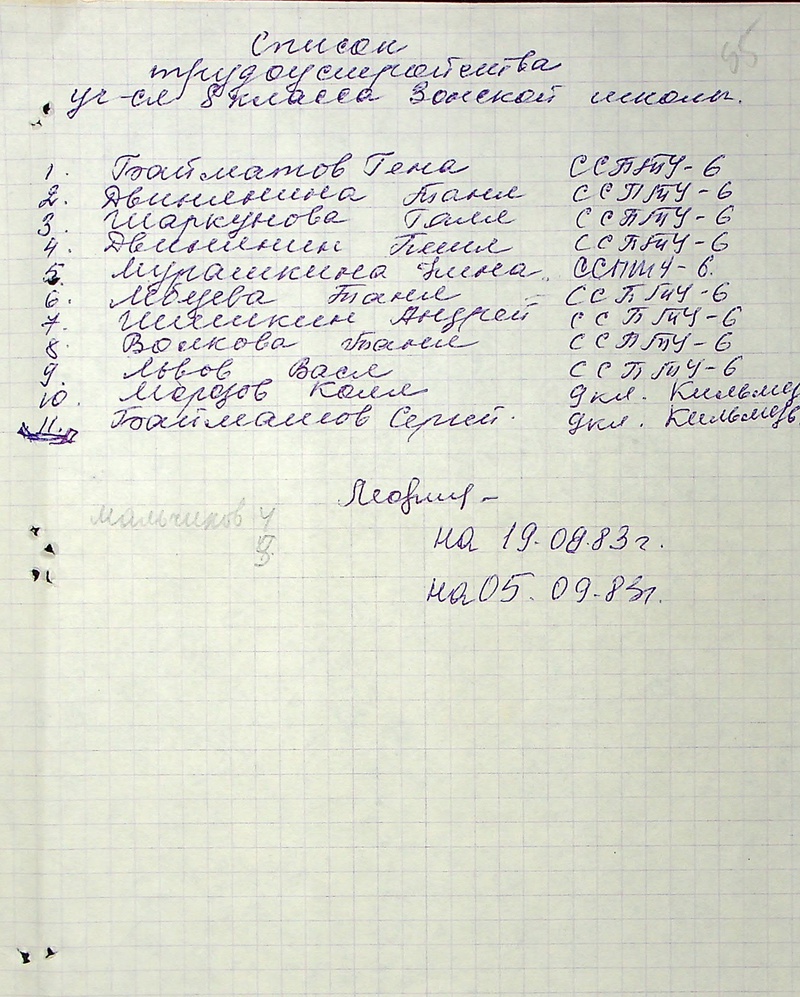 85
Список
трудоустройства
уч-ся 8 класса Зонской школы.
1. Байматов Гена ССПТУ-6
2. Двинянина Таня ССПТУ-6
3. Шаркунова Галя ССПТУ-6
4. Двинянин ССПТУ-6
5. Мурашкина ССПТУ-6.
6. Таня - ССПТУ-6
7. Шишкин Андрей ССПТУ-6
8. Волкова Таня ССПТУ-6
9. Львов Вася ССПТУ-6
10. Морозов Коля 9 кл. Кильмезь
11. Байматов Сергей. 9 кл. Кильмезь
мальчиков 4
на 19.09.83 г.
на 05.09.83г.